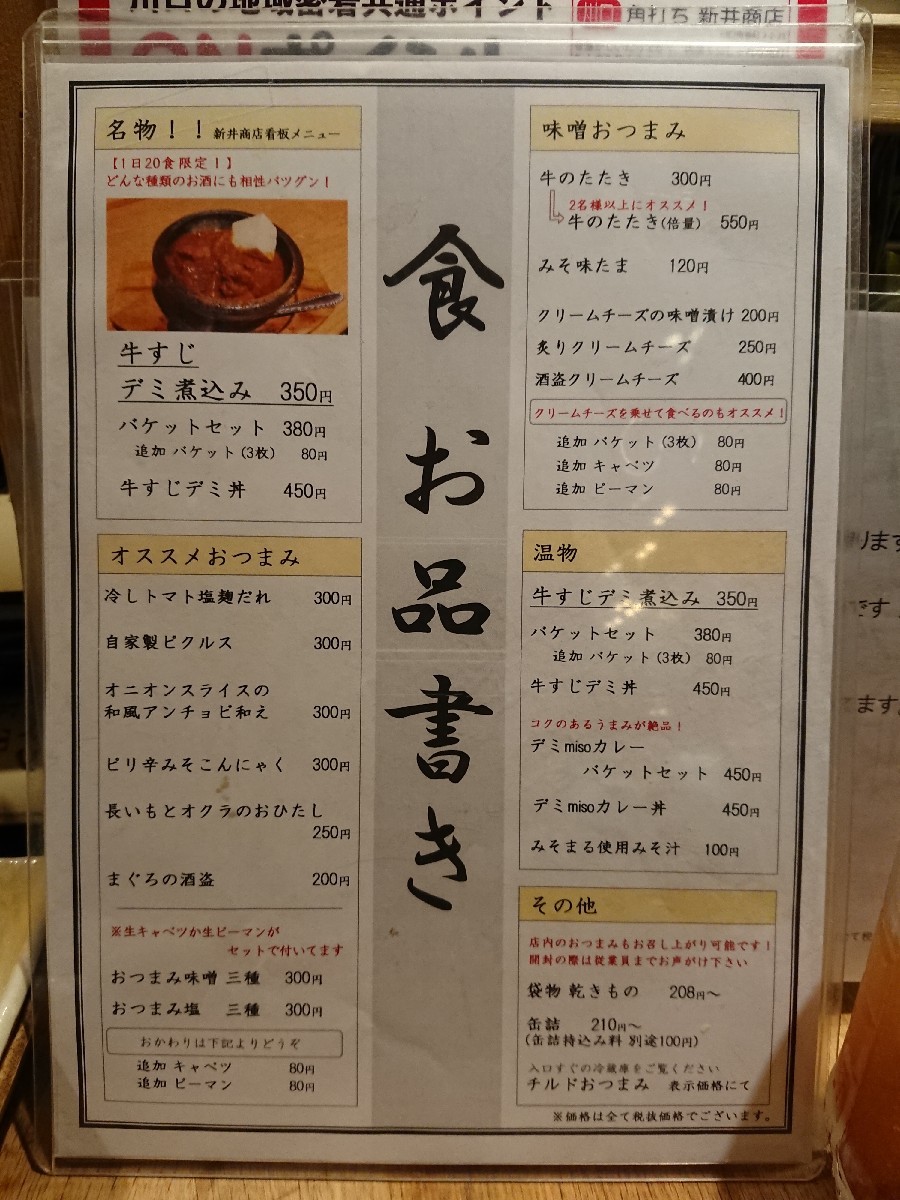 川口の地域密着共通ポイント
川口
角打ち 新井商店
食 お品書き
名物！！ 新井商店看板メニュー
【1日20食限定！】
どんな種類のお酒にも相性バツグン！
牛すじ
デミ煮込み 350円
バケットセット 380円
追加 バケット(3枚) 80円
牛すじデミ丼 450円
オススメおつまみ
冷しトマト塩麹だれ 300円
自家製ピクルス 300円
オニオンスライスの
和風アンチョビ和え 300円
ピリ辛みそこんにゃく 300円
長いもとオクラのおひたし
250円
まぐろの酒盗 200円
※生キャベツか生ピーマンが
セットで付いてます
おつまみ味噌 三種 300円
おつまみ塩 三種 300円
おかわりは下記よりどうぞ
追加 キャベツ 80円
追加 ピーマン 80円
味噌おつまみ
牛のたたき 300円
2名様以上にオススメ！
牛のたたき(倍量) 550円
みそ味たま 120円
クリームチーズの味噌漬け 200円
炙りクリームチーズ 250円
酒盗クリームチーズ 400円
クリームチーズを乗せて食べるのもオススメ！
追加 バケット(3枚) 80円
追加 キャベツ 80円
追加 ピーマン 80円
温物
牛すじデミ煮込み 350円
バケットセット 380円
追加 バケット(3枚) 80円
牛すじデミ丼 450円
コクのあるうまみが絶品！
デミmisoカレー
バケットセット 450円
デミmisoカレー丼 450円
みそまる使用みそ汁 100円
その他
店内のおつまみもお召し上がり可能です！
開封の際は従業員までお声がけ下さい
袋物 乾きもの 208円～
缶詰 210円～
(缶詰持込み料 別途100円)
入口すぐの冷蔵庫をご覧ください
チルドおつまみ 表示価格にて
※価格は全て税抜価格でございます。
ります
です
てます